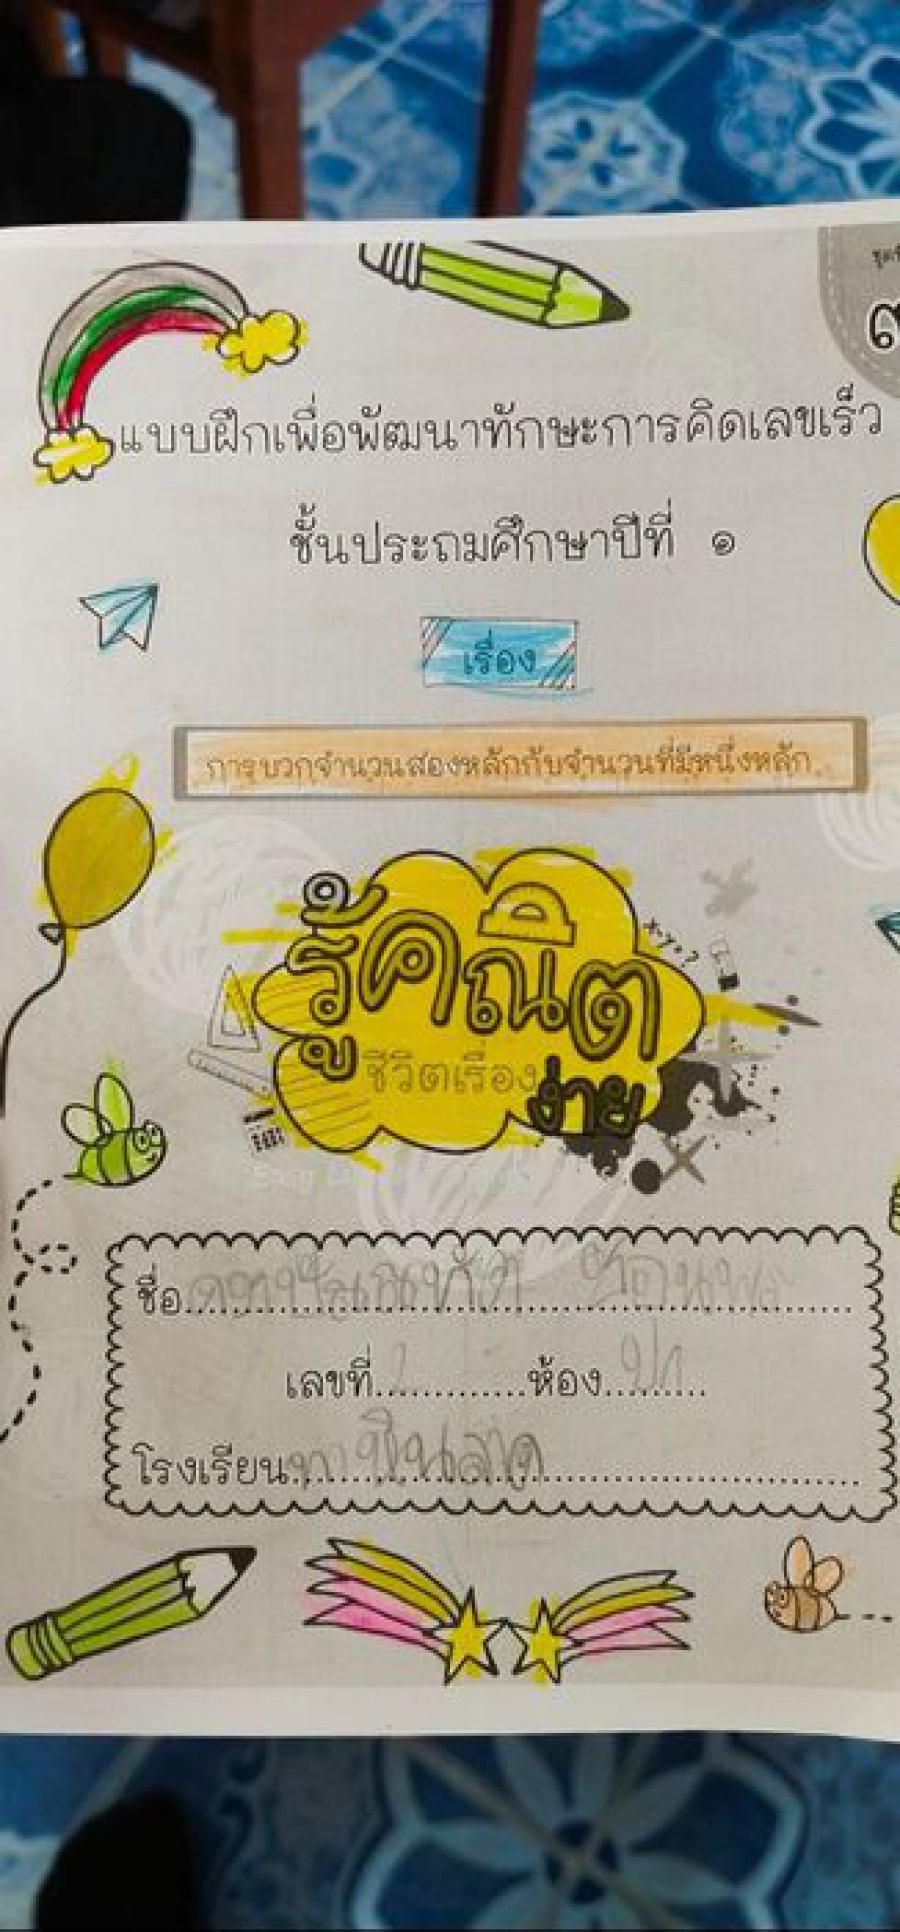 ชุดที่
๙
แบบฝึกเพื่อพัฒนาทักษะการคิดเลขเร็ว
ชั้นประถมศึกษาปีที่ ๑
เรื่อง
การบวกจำนวนสองหลักกับจำนวนที่มีหนึ่งหลัก
รู้คณิต
ชีวิตเรื่อง
ง่าย
ชื่อ
เลขที่ ห้อง
โรงเรียน